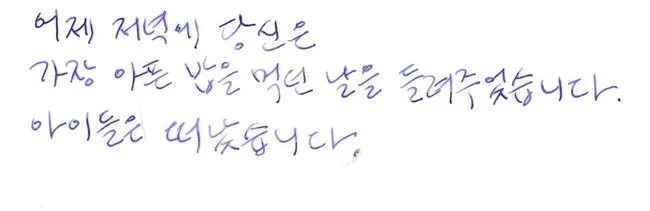 어제 저녁에 당신은
가장 아픈 밥을 먹던 날을 들려주었습니다.
아이들은 떠났습니다.